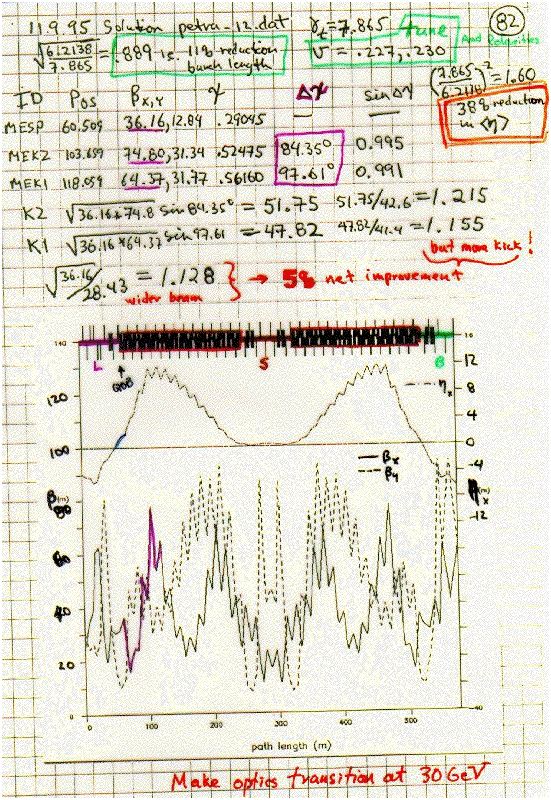 11.9.95 Solution petra-12.dat γt=7.865 tune 82
√6.2138/7.865 = .889 is 11% reduction bunch length
ν = .227, .230 And Polarities
(7.865/6.2138)² = 1.60
38% reduction in <η>
ID Pos βx,y ψ Δψ sinΔψ
MESP 60.509 36.16, 12.84 .29045 — —
MEK2 103.659 74.80, 31.34 .52475 84.35° 0.995
MEK1 118.059 64.37, 31.77 .56160 97.61° 0.991
K2 √36.16*74.8 sin 84.35° = 51.75 51.75/42.6 = 1.215
K1 √36.16*64.37 sin 97.61 = 47.82 47.82/41.4 = 1.155
but more kick!
√36.16/28.43 = 1.128 } → 5% net improvement
wider beam
140 16
L S B
12
120 ηx 8
4
100 0
βx -4
βy
β(m) (m)
80 -12
60
40
20
0 -40
0 100 200 300 400 500
path length (m)
Make optics transition at 30 GeV